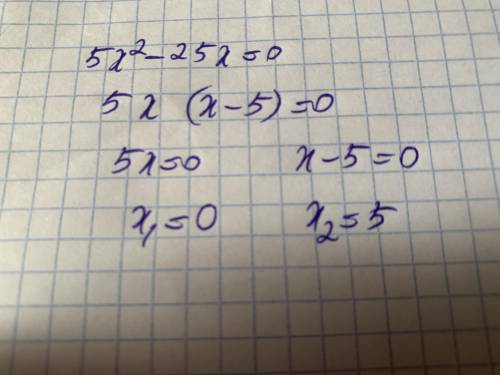 5x² - 25x = 0
5x (x - 5) = 0
5x = 0 x - 5 = 0
x₁ = 0 x₂ = 5